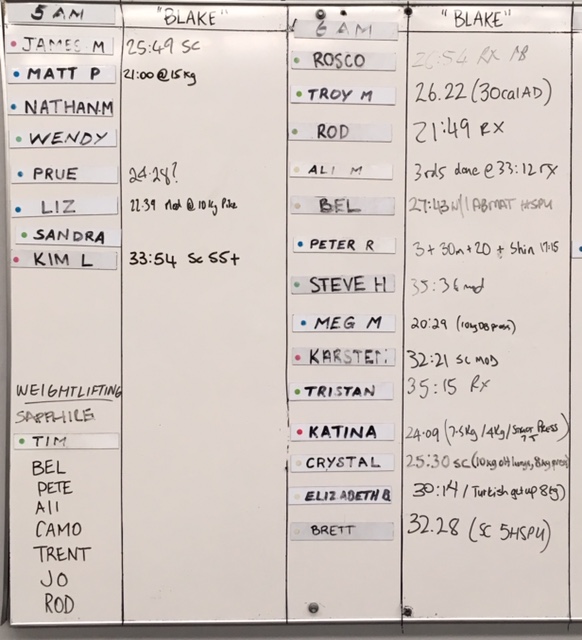 5 AM "BLAKE"
JAMES M 25:49 SC
MATT P 21:00 @ 15kg
NATHAN.M
WENDY
PRUE 24.28?
LIZ 22.39 Mod @ 10kg
SANDRA
KIM L 33:54 SC 55+
WEIGHTLIFTING
SAPPHIRE
TIM
BEL
PETE
Ali
CAMO
TRENT
JO
ROD
6 AM "BLAKE"
ROSCO 20:54 RX PB
TROY M 26.22 (30cal AD)
ROD 21:49 RX
ALI M 3rds done @ 33:12 rx
BEL 27:43 w/1 ABMAT HSPU
PETER R 3 + 30m + 20 + Shin 17:15
STEVE H 35:36 mod
MEG M 20:29
KARSTEN 32:21 SC MOD
TRISTAN 35:15 RX
KATINA 24.09 (7.5kg / 4kg / STRICT PRESS
CRYSTAL 25:30 SC (10kg oh lunge, 8kg press)
ELIZABETH B 30:14 / Turkish getup 8kg)
BRETT 32.28 (SC 5HSPU)